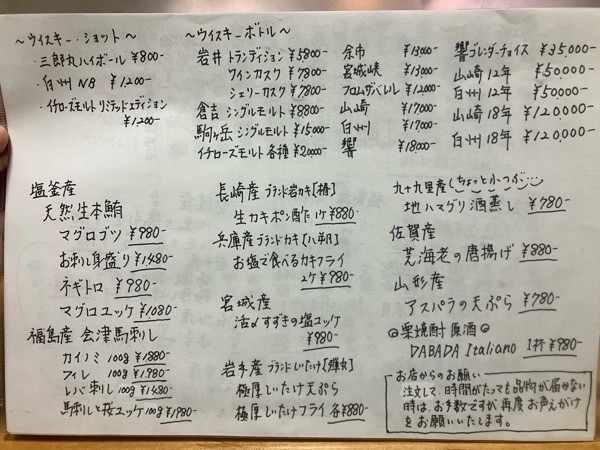 ～ウイスキー・ショット～
・三郎丸ハイボール ¥800-
・白州NB ¥1200-
・イチローズモルトリミテッドエディション
¥1,200-
～ウイスキーボトル～
岩井 トランディション ¥5800-
ワインカスク ¥7800-
シェリーカスク ¥7800-
倉吉 シングルモルト ¥8800-
駒ヶ岳 シングルモルト ¥15000-
イチローズモルト各種 ¥20000-
余市 ¥13000-
宮城峡 ¥13000-
フロムザバレル ¥12000-
山崎 ¥17000-
白州 ¥17000-
響 ¥18000-
響ブレンダーチョイス ¥35,000-
山崎12年 ¥50000-
白州12年 ¥50000-
山崎18年 ¥120000-
白州18年 ¥120000-
塩釜産
天然生本鮪
マグロブツ ¥980-
お刺し身盛り ¥1480-
ネギトロ ¥980-
マグロユッケ ¥1080-
福島産 会津馬刺し
カイノミ 100g ¥1880-
フィレ 100g ¥1980-
レバ刺し 100g ¥1480-
馬刺しと桜ユッケ 100g ¥1980-
長崎産 ブランド岩カキ[椿]
生カキポン酢 1ケ ¥880-
兵庫産 ブランドカキ[八朔]
お塩で食べるカキフライ
2ケ ¥980-
宮城産
活〆すずきの塩ユッケ
¥980-
岩手産 ブランドしいたけ
極厚しいたけ天ぷら
極厚しいたけフライ 各¥880-
九十九里産(ちょっと小つぶ…
地ハマグリ酒蒸し ¥780-
佐賀産
芝海老の唐揚げ ¥880-
山形産
アスパラの天ぷら ¥780-
◎栗焼酎原酒◎
DABADA Italiano 1杯 ¥980-
お店からのお願い
注文して、時間がたっても品物が届かない
時は、お手数ですが再度お声がけ
をお願いいたします。